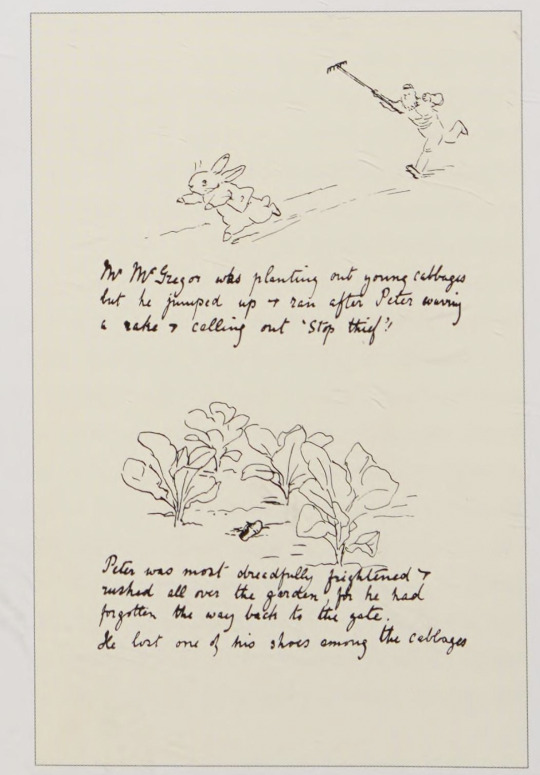 Mr McGregor was planting out young cabbages
but he jumped up & ran after Peter waving
a rake & calling out 'Stop thief'!
Peter was most dreadfully frightened &
rushed all over the garden for he had
forgotten the way back to the gate.
He lost one of his shoes among the cabbages